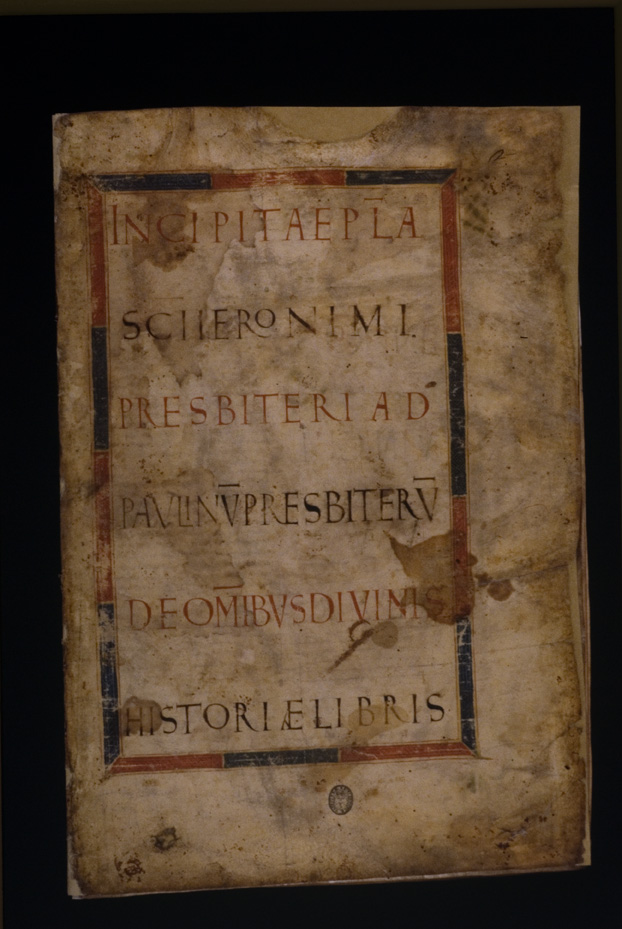 INCIPIT AEPL̅A
SCI IERONIMI
PRESBITERI AD
PAULINV̅ PRESBITERV̅
DE OM̅IBVS DIVINIS
HISTORIÆ LIBRIS